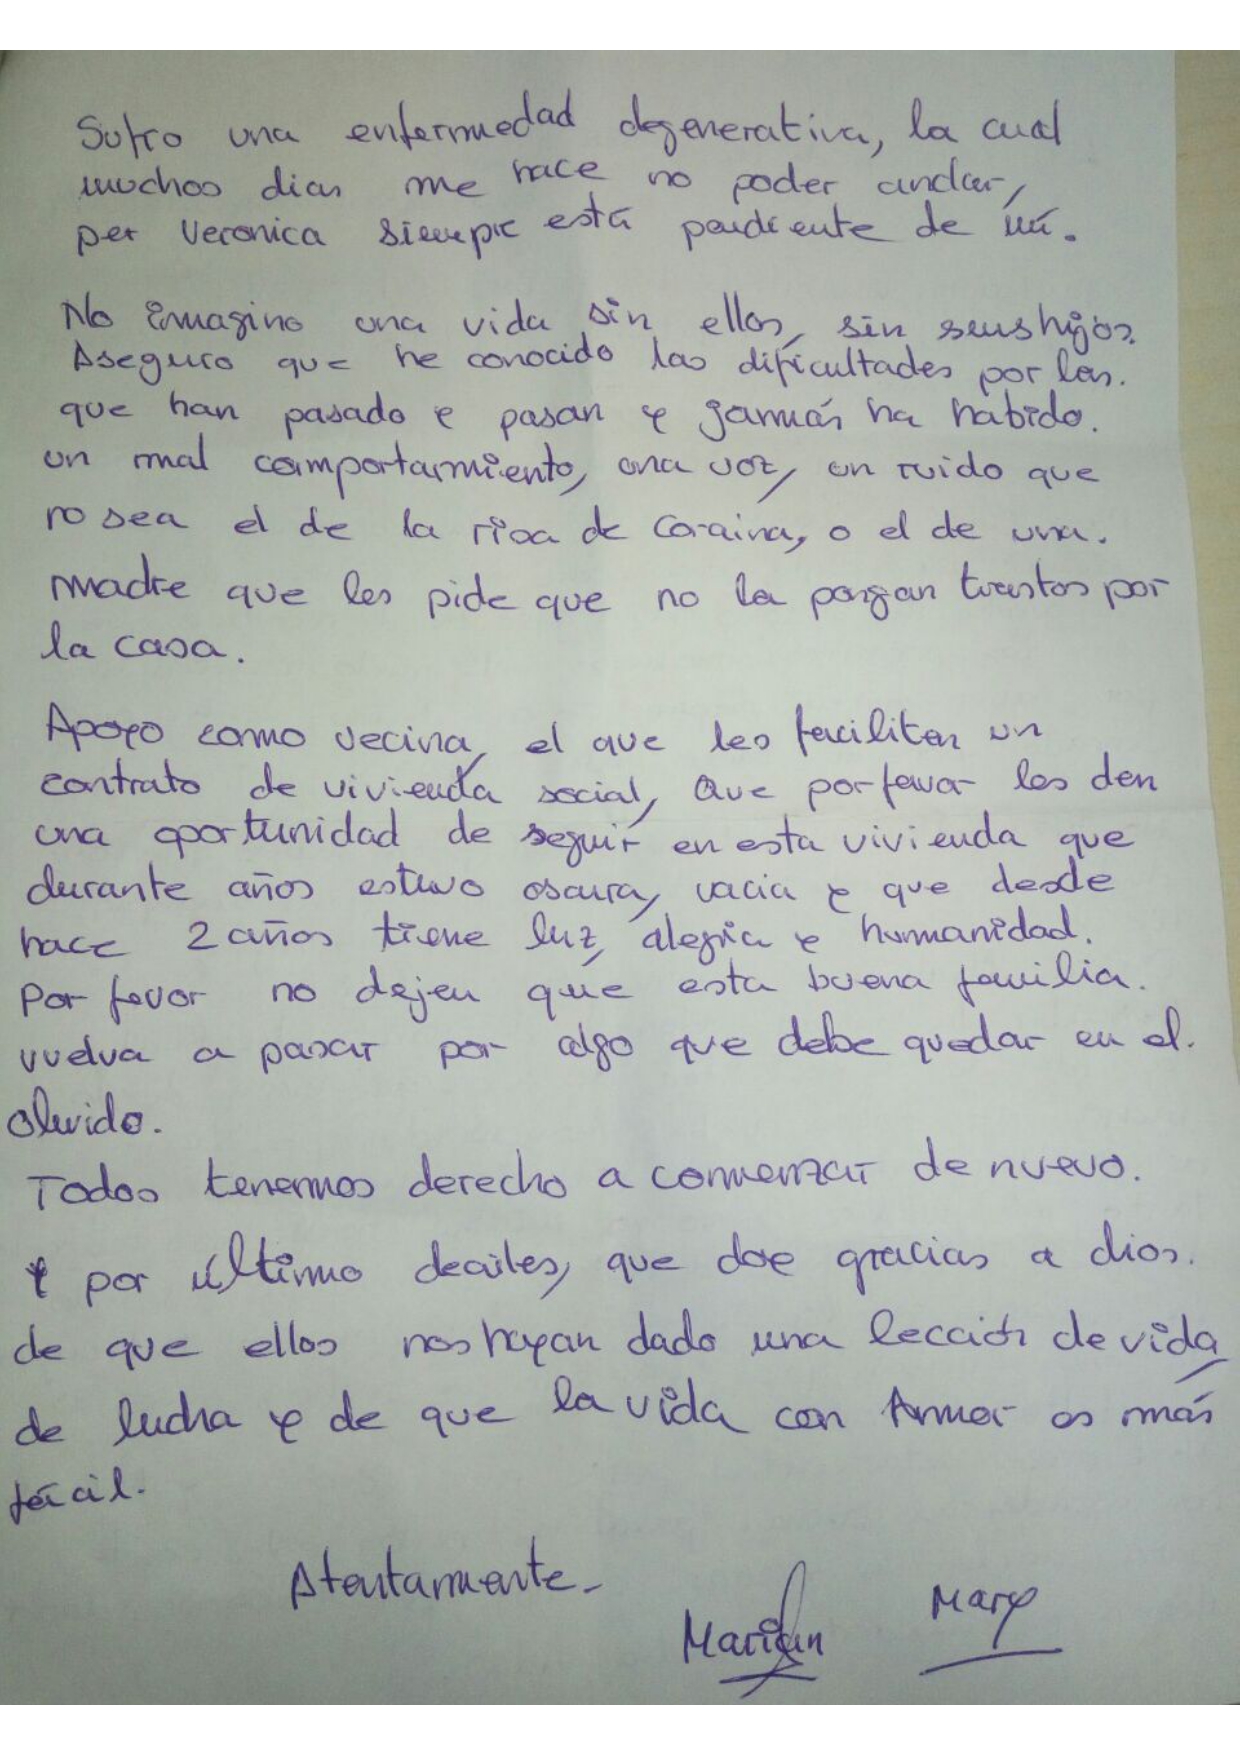 Sufro una enfermedad degenerativa, la cual
muchos dias me hace no poder andar,
per Veronica siempre está pendiente de mí.
No imagino una vida sin ellos, sin seus hijos.
Aseguro que he conocido las dificultades por las.
que han pasado e pasan y jamás ha habido.
un mal comportamiento, una voz, un ruido que
no sea el de la risa de Coraina, o el de una.
madre que les pide que no la pongan trastos por
la casa.
Apoyo como vecina, el que les faciliten un
contrato de vivienda social, Que por favor les den
una oportunidad de seguir en esta vivienda que
durante años estuvo oscura, vacia y que desde
hace 2 años tiene luz, alegria y humanidad.
Por favor no dejen que esta buena familia.
vuelva a pasar por algo que debe quedar en el.
olvido.
Todos tenemos derecho a comenzar de nuevo.
Y por último decirles, que doy gracias a dios.
de que ellos nos hayan dado una lección de vida,
de lucha y de que la vida con Amor es más
fácil.
Atentamente.
Mary